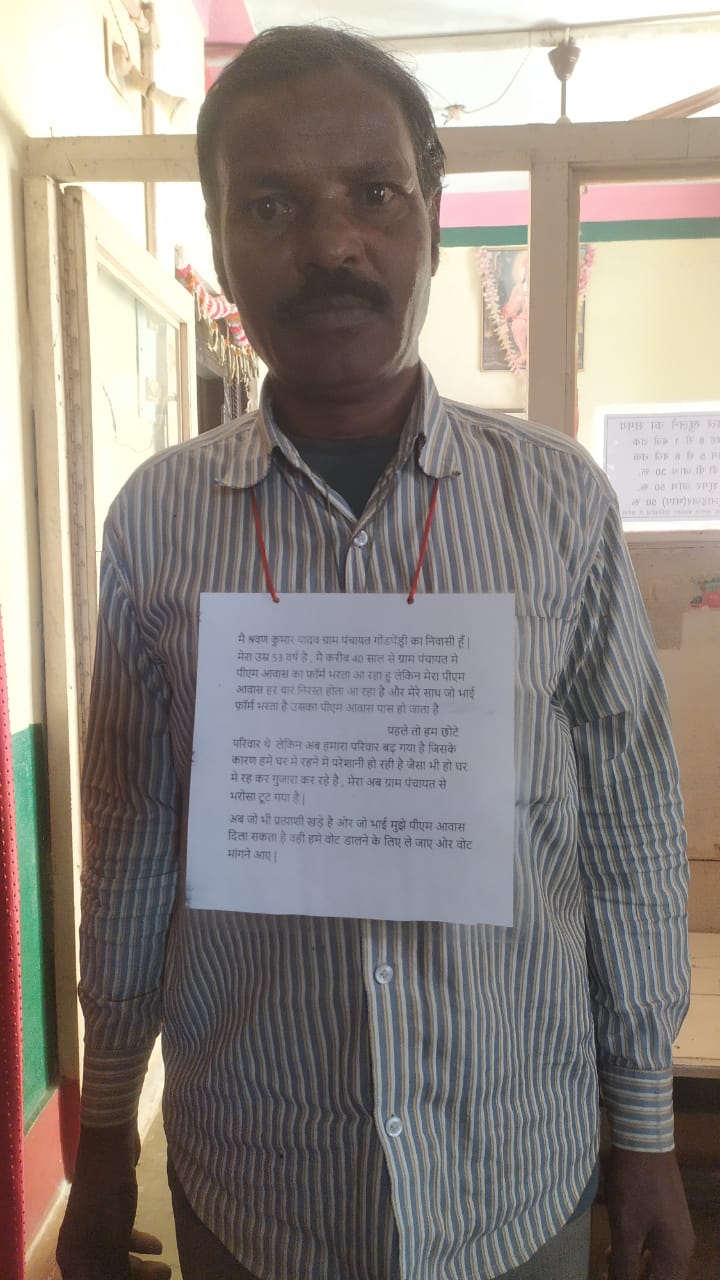 मै श्रवण कुमार यादव ग्राम पंचायत गोंडपेंड्री का निवासी हूँ |
मेरा उम्र 53 वर्ष है , मै करीब 40 साल से ग्राम पंचायत मे
पीएम आवास का फ़ॉर्म भरता आ रहा हु लेकिन मेरा पीएम
आवास हर बार निरस्त होता आ रहा है और मेरे साथ जो भाई
फ़ॉर्म भरता है उसका पीएम आवास पास हो जाता है
पहले तो हम छोटे
परिवार थे लेकिन अब हमारा परिवार बढ़ गया है जिसके
कारण हमे घर मे रहने मे परेशानी हो रही है जैसा भी हो घर
मे रह कर गुजारा कर रहे है , मेरा अब ग्राम पंचायत से
भरोसा टूट गया है |
अब जो भी प्रत्याशी खड़े है ओर जो भाई मुझे पीएम आवास
दिला सकता है वही हमे वोट डालने के लिए ले जाए ओर वोट
मांगने आए |